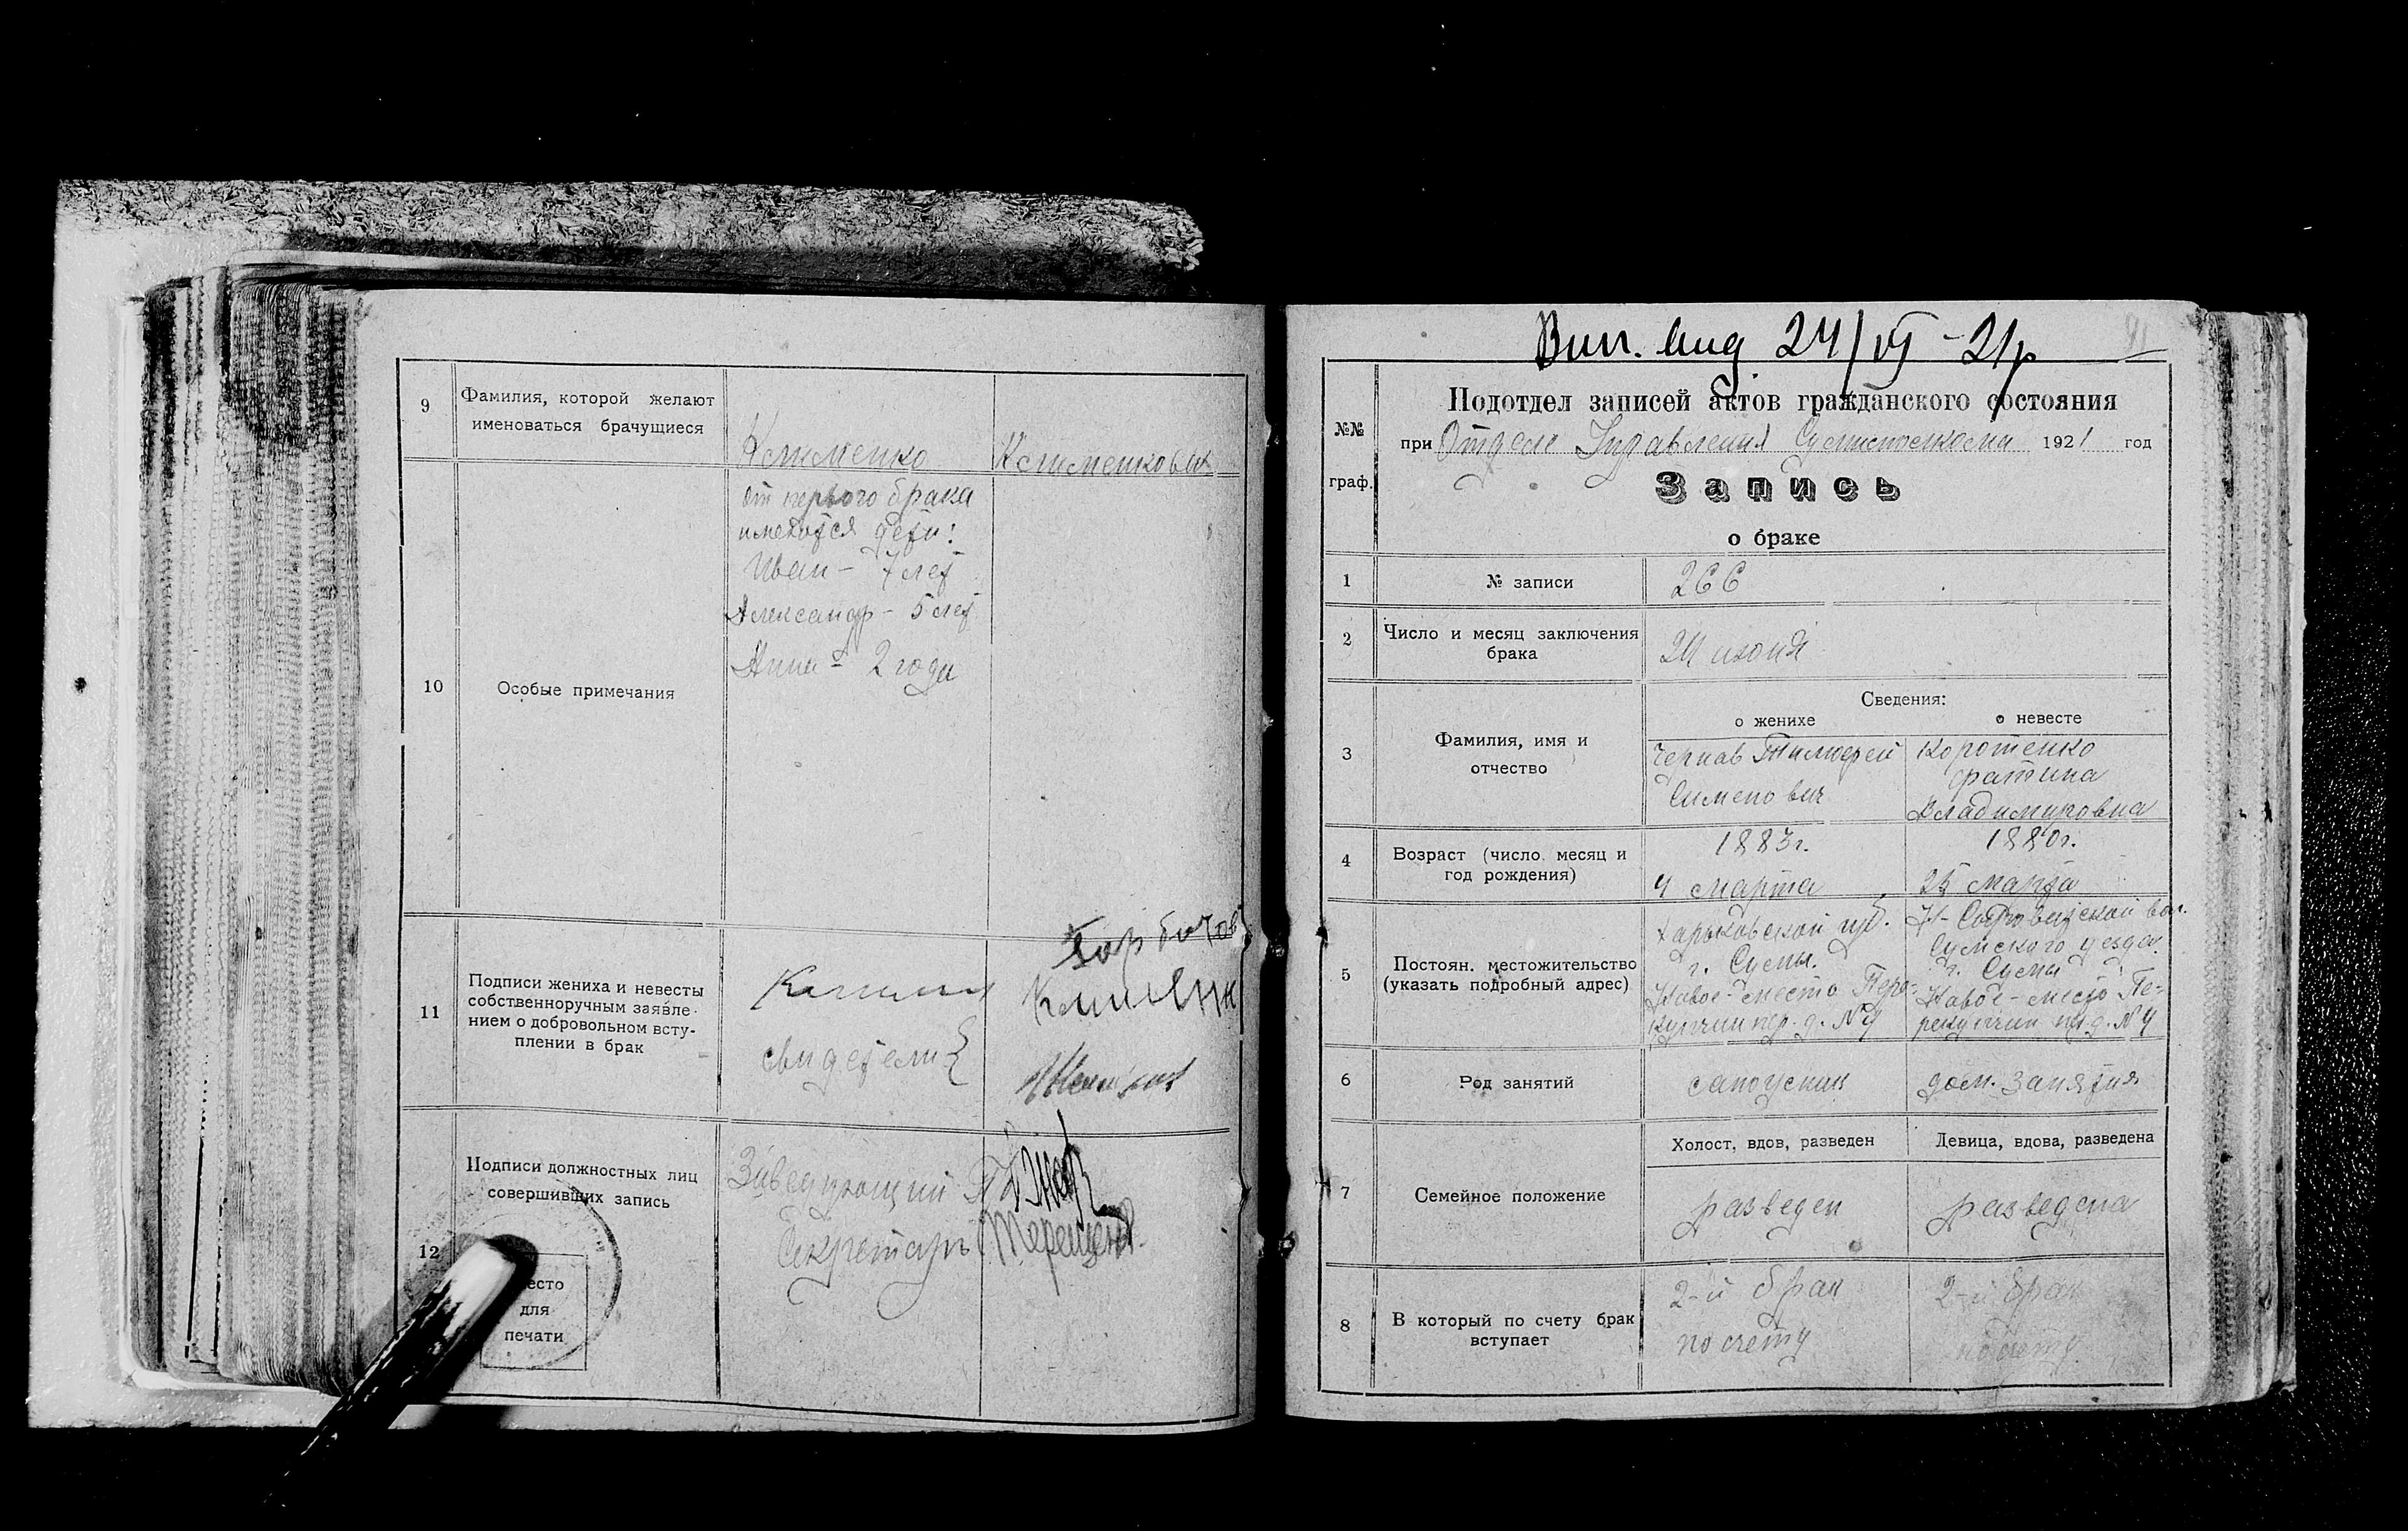 9
Фамилия, которой желают
именоваться брачущиеся
Клименко
Клименковых
10
Особые примечания
от первого брака
имеются дети:
Иван - 7 лет
Александр - 5 лет
Анна - 2 года
11
Подписи жениха и невесты
собственноручным заявле-
нием о добровольном всту-
плении в брак
свидетели {
12
Подписи должностных лиц
совершивших запись
есто
для
печати
Заведующий
Секретарь
Вип. 24/VI - 21р
91
№№
граф.
Подотдел записей актов гражданского состояния
при Отделе Управления 1921 год
Запись
о браке
1
№ записи
266
2
Число и месяц заключения
брака
24 июня
3
Фамилия, имя и
отчество
Сведения:
о женихе
о невесте
Чернав Тимофей
Семенович
Коротенко
Фатина
Владимировна
4
Возраст (число месяц и
год рождения)
1883г.
4 марта
1880г.
25 марта
5
Постоян. местожительство
(указать подробный адрес)
Харьковской губ.
г. Сумы.
Новое-место Пере-
купчий пер. д. №4
вол.
Сумского уезда
г. Сумы
Новое-место Пе-
рекупчий д. №4
6
Род занятий
сапожник
дом. занятия
7
Семейное положение
Холост, вдов, разведен
Девица, вдова, разведена
разведен
разведена
8
В который по счету брак
вступает
2-й брак
по счету
2-й брак
по счету